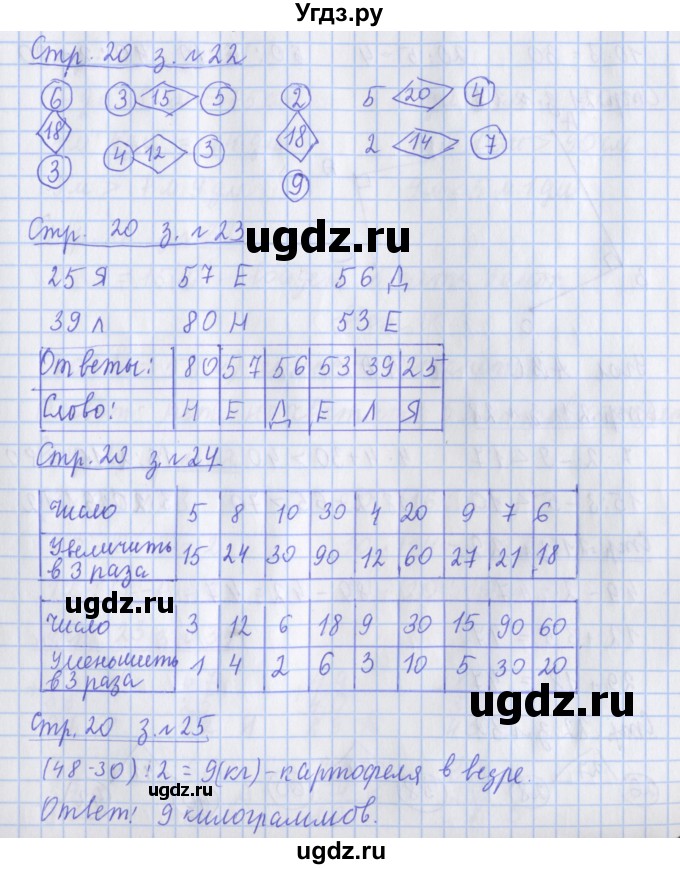 Угдз.ру
Стр. 20 з. №22
6 3 15 5 2 5 20 4
18 4 12 3 18 2 14 7
3 9
Стр. 20 з. №23
ugdz.ru
25 Я 57 Е 56 Д
39 Л 80 Н 53 Е
Ответы: 80 57 56 53 39 25
Слово: Н Е Д Е Л Я
Стр. 20 з. №24
Число 5 8 10 30 4 20 9 7 6
Увеличить в 3 раза 15 24 30 90 12 60 27 21 18
ugdz.ru
Число 3 12 6 18 9 30 15 90 60
Уменьшить в 3 раза 1 4 2 6 3 10 5 30 20
ugdz.ru
Стр. 20 з. №25
(48-30):2=9(кг)-картофеля в ведре.
ugdz.ru
Ответ: 9 килограммов.
ugdz.ru